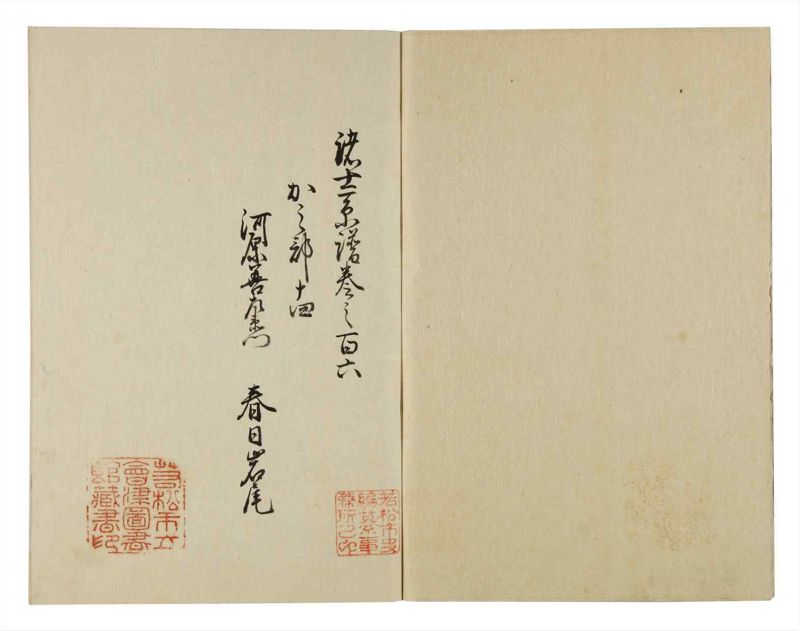 諸士系譜巻之百六
か之部 十四
河原善左衛門 春日岩尾
若松市史
編纂事
務所之印
若松市立
會津圖書
館藏書印